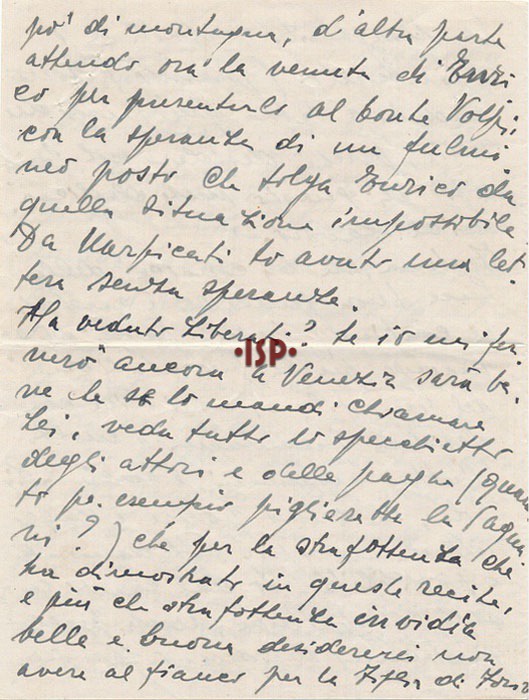 po' di montagna, d'altra parte
attendo ora la venuta di Enri
co per presentarlo al Conte Volpi,
con la speranza di un fulmi
neo posto che tolga Enrico da
quella situazione impossibile
Da Marpicati ho avuto una let
tera senza speranze.
Ha veduto Liberati? Se io mi fer
merò ancora a Venezia sarà be
ne che lo mandi chiamare
Lei, veda tutto lo specchietto
degli attori e delle paghe (quan
to per esempio piglierebbe la Pagna
ni?) che per la strafottenza che
ha dimostrato in queste recite,
e più che strafottenza invidia
bella e buona desidererei non
avere al fianco per la Figlia di Iorio
·ISP·